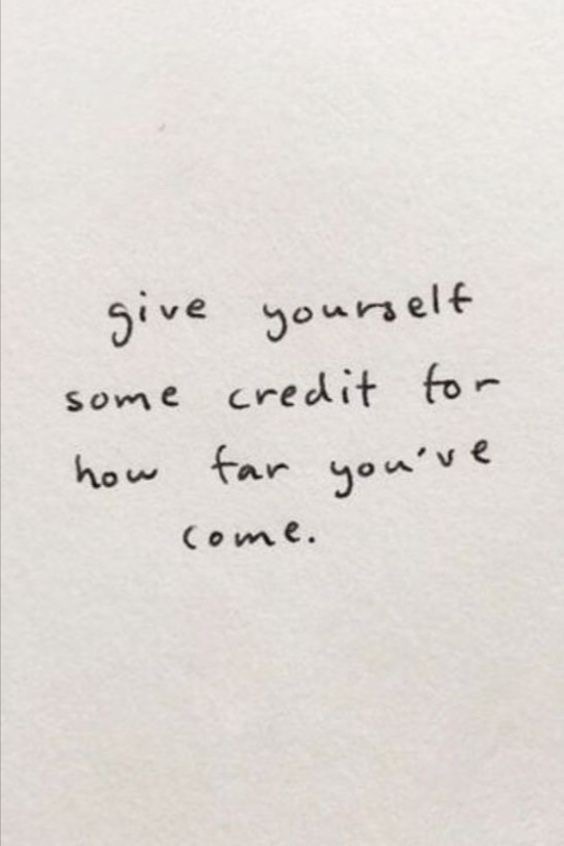 give yourself
some credit for
how far you've
come.